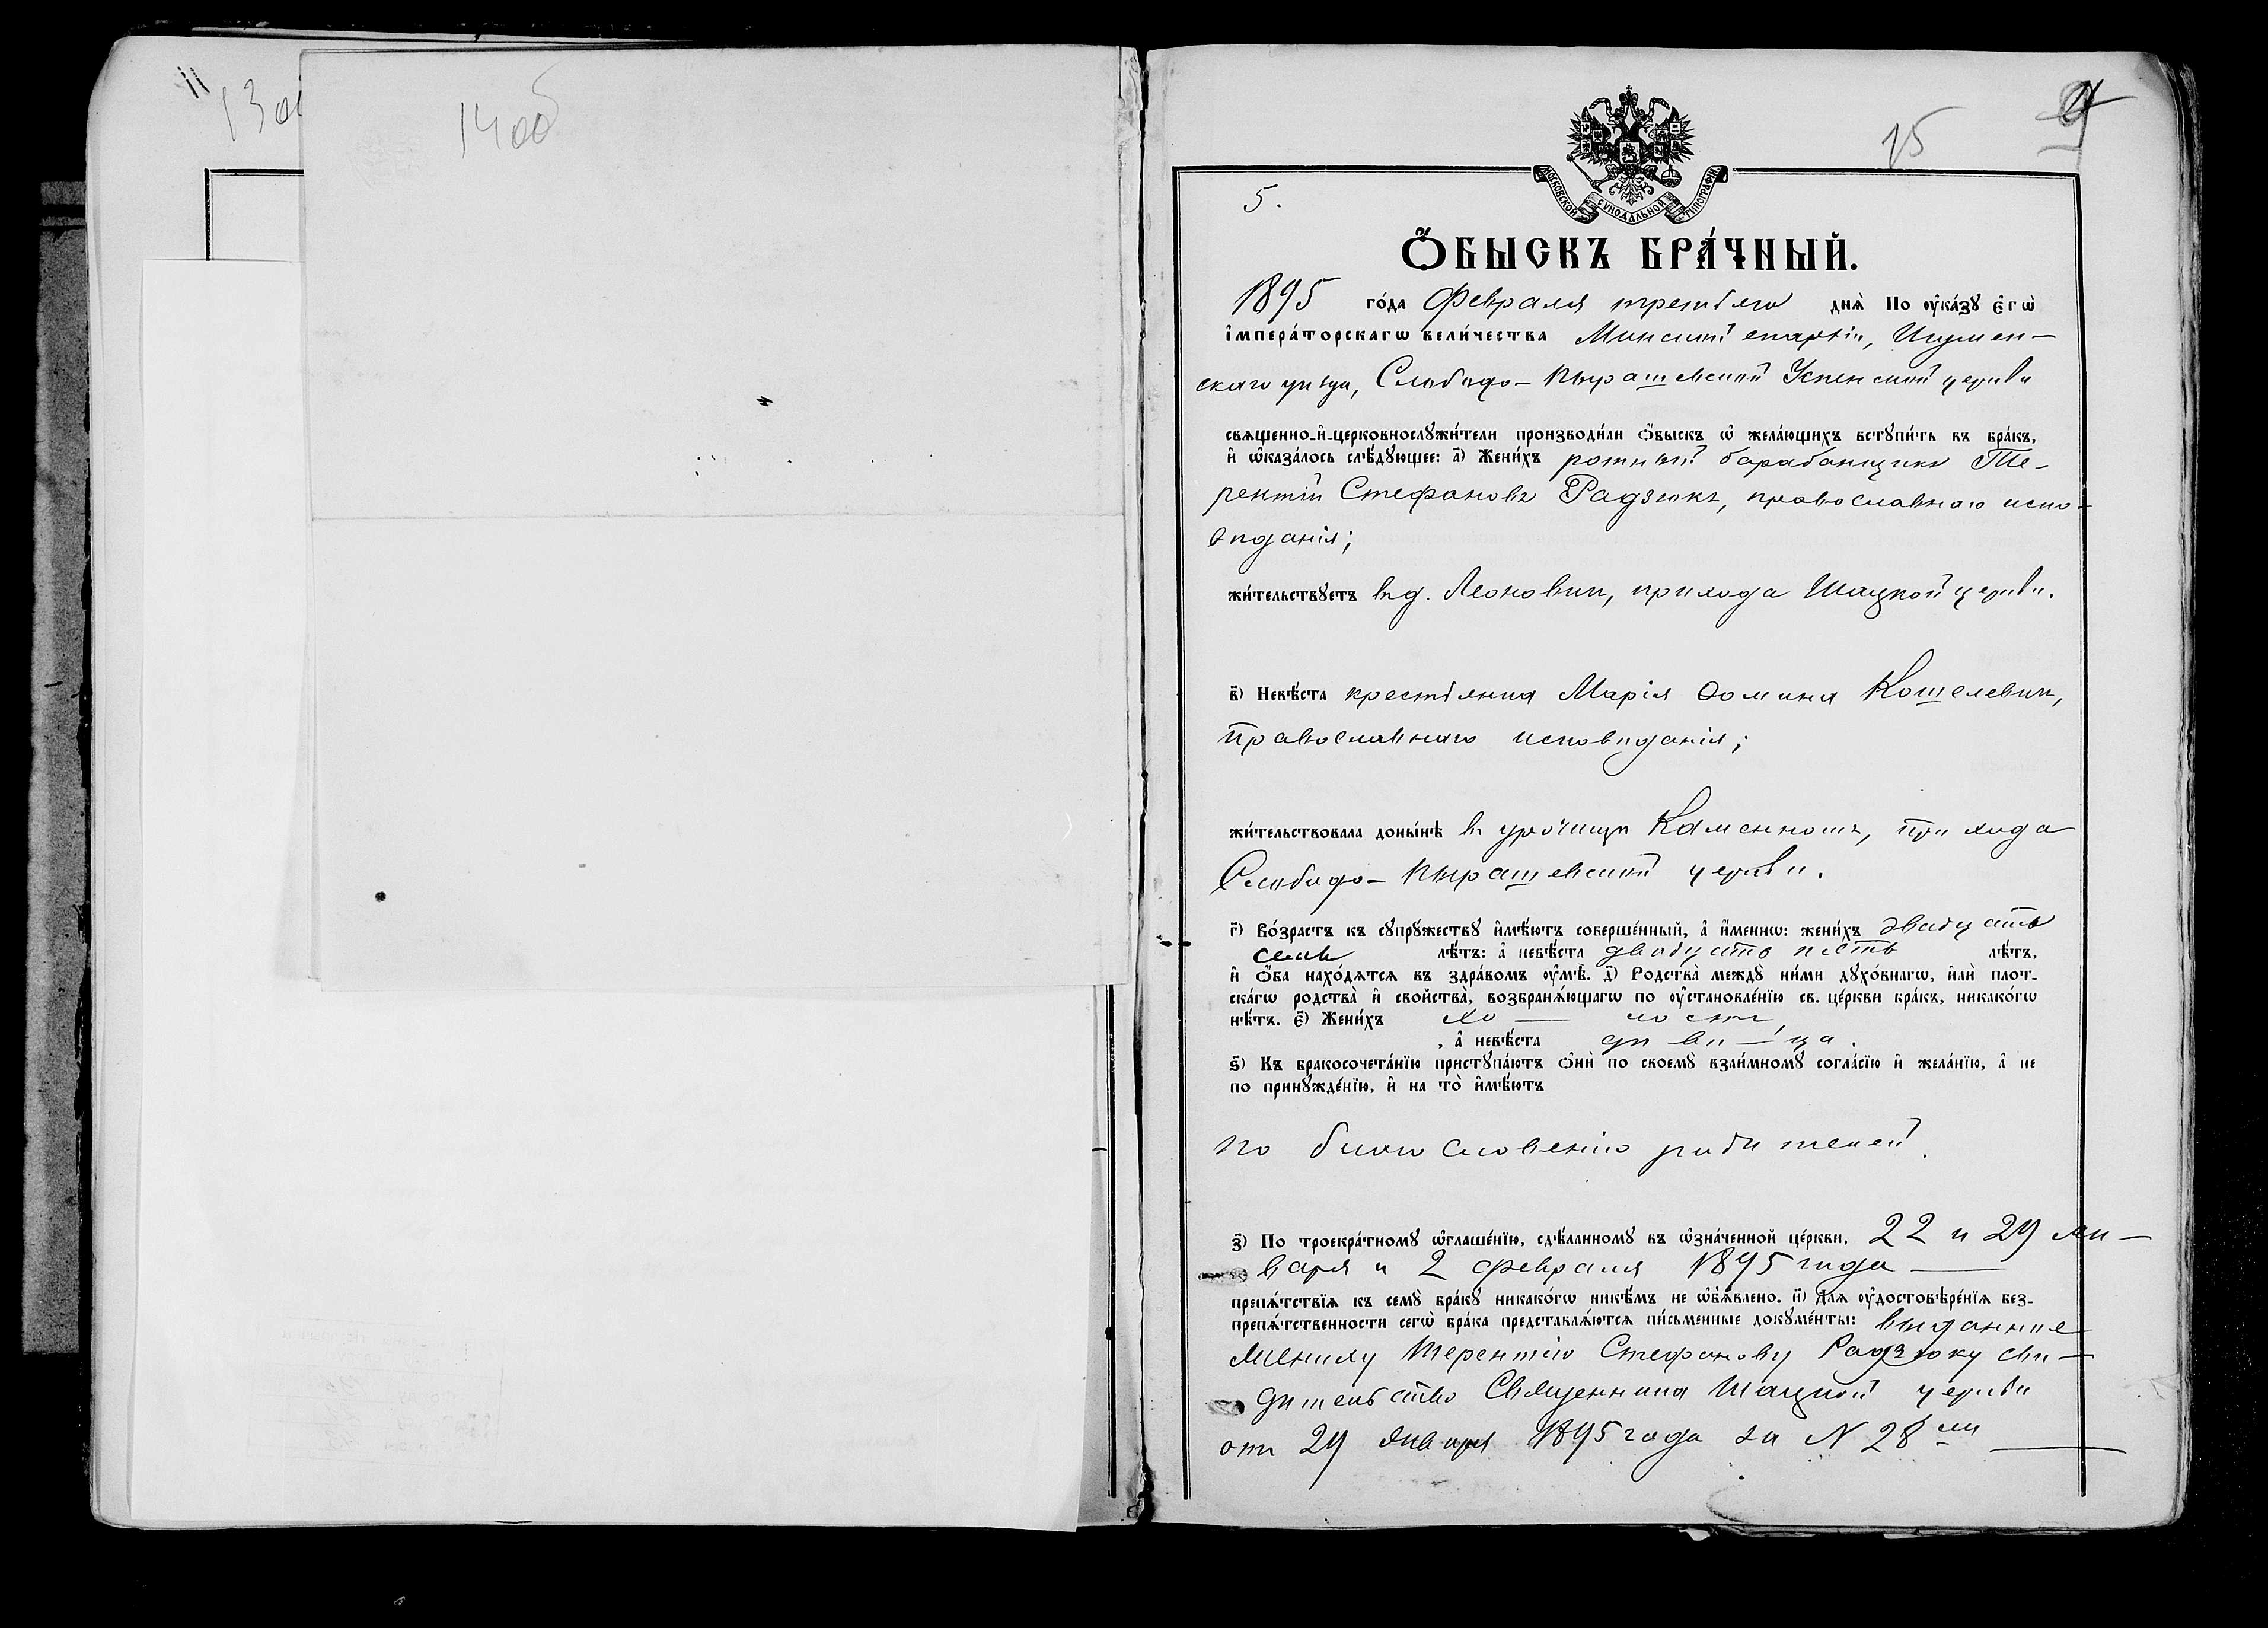 13 об
14 об
15
МОСКОВСКОЙ СѴНОДАЛЬНОЙ ТИПОГРАФІИ
5.
Ѻ҆БЫСКЪ БРА́ЧНЫЙ.
1895 го́да Февраля третьяго днѧ̀ По ᲂу҆ка́зꙋ є҆гѡ̀
і҆мпера́торскагѡ вели́чества Минской епархіи, Игумен-
скаго уѣзда, Слободо-Пырашевской Успенской церкви
свѧщенно-и҆-церковнослꙋжи́тели производи́ли ѻ҆́быскъ ѡ҆ жела́ющихъ встꙋпи́ть въ бра́къ,
и҆ ѡ҆каза́лось слѣ́дꙋющее: а҃) Жени́хъ ротный барабанщикъ Те-
рентій Стефановъ Радзюкъ, православнаго испо-
вѣданія;
жи́тельствꙋетъ въ д. Леоновкѣ, прихода Шацкой церкви.
в҃) Невѣ́ста крестьянка Марія Ѳомина Кошелевикъ,
православнаго исповѣданія;
жи́тельствовала доны́нѣ въ урочищѣ Каменномъ, прихода
Слободо-Пырашевской церкви.
г҃) Во́зрастъ къ сꙋпрꙋ́жествꙋ и҆мѣ́ютъ соверше́нный, а҆ и҆́меннѡ: жени́хъ двадцать
семь лѣ́тъ: а҆ невѣ́ста двадцать шесть лѣ́тъ,
и҆ ѻ҆́ба нахо́дѧтсѧ въ здра́вомъ ᲂу҆мѣ̀. д҃) Родства̀ междꙋ̀ ни́ми дꙋхо́внагѡ, и҆лѝ плот-
ска́гѡ родства̀ и҆ свойства̀, возбранѧ́ющагѡ по ᲂу҆становле́нїю св. це́ркви бра́къ, никако́гѡ
нѣ́тъ. є҃) Жени́хъ хо — лостъ,
, а҆ невѣ́ста дѣ ви — ца.
ѕ҃) Къ бракосочета́нїю пристꙋпа́ютъ ѻ҆нѝ по своемꙋ̀ взаи́мномꙋ согла́сїю и҆ жела́нїю, а҆ не
по принꙋжде́нїю, и҆ на то̀ и҆мѣ́ютъ
по благословенію родителей.
з҃) По троекра́тномꙋ ѡ҆глаше́нїю, сдѣ́ланномꙋ въ ѡ҆зна́ченной це́ркви, 22 и 29 ян-
варя и 2 февраля 1895 года —
препѧ́тствїѧ къ семꙋ̀ бра́кꙋ никако́гѡ никѣ́мъ не ѡ҆б̾ѧ́влено. и҃) Длѧ ᲂу҆достовѣре́нїѧ без-
препѧ́тственности сегѡ̀ бра́ка представлѧ́ютсѧ пи́сьменные докꙋме́нты: выданное
жениху Терентію Стефанову Радзюку сви-
дѣтельство Священника Шацкой церкви
отъ 29 Января 1895 года за N 28 мъ —